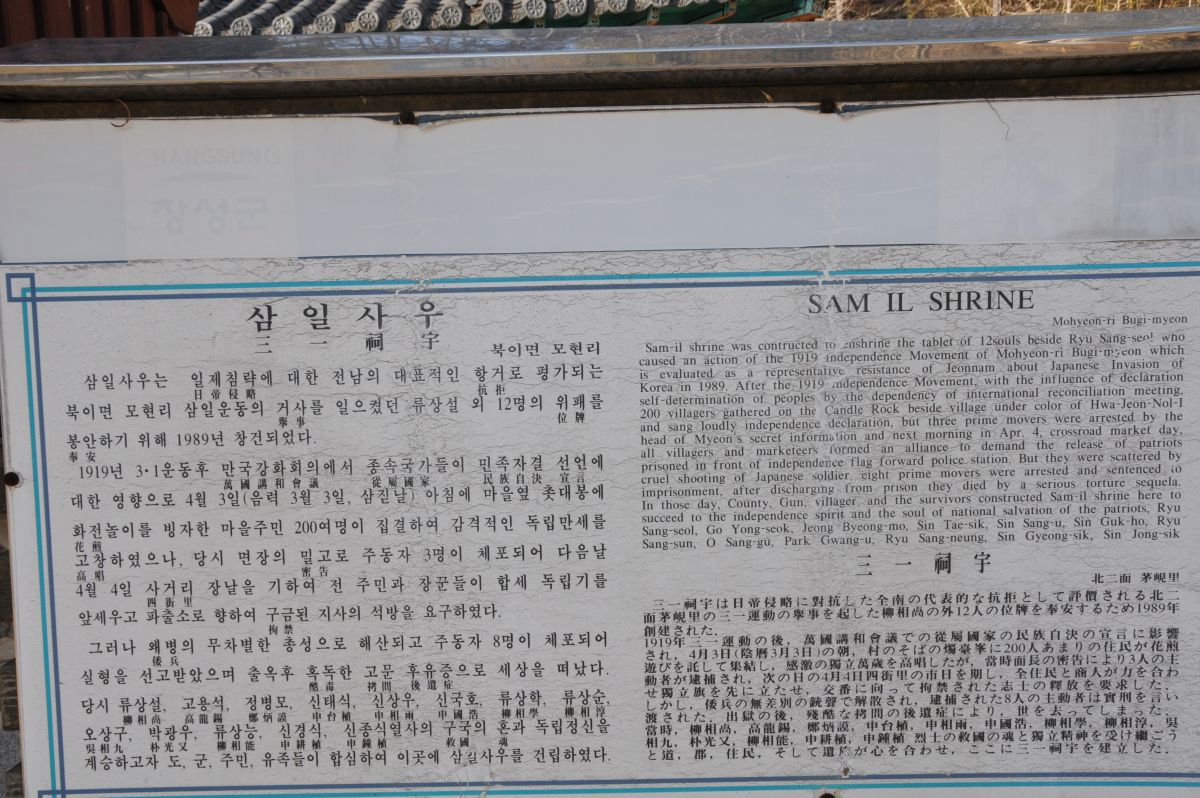 CHANGSUNG
장성군
삼 일 사 우
三 一 祠 宇
북이면 모현리
삼일사우는 일제침략에 대한 전남의 대표적인 항거로 평가되는
日帝侵略 抗拒
북이면 모현리 삼일운동의 거사를 일으켰던 류상설 외 12명의 위패를
擧事 位牌
봉안하기 위해 1989년 창건되었다.
奉安
1919년 3·1운동후 만국강화회의에서 종속국가들이 민족자결 선언에
萬國講和會議 從屬國家 民族自決 宣言
대한 영향으로 4월 3일(음력 3월 3일, 삼짇날) 아침에 마을옆 촛대봉에
화전놀이를 빙자한 마을주민 200여명이 집결하여 감격적인 독립만세를
花煎
고창하였으나, 당시 면장의 밀고로 주동자 3명이 체포되어 다음날
高唱 密告
4월 4일 사거리 장날을 기하여 전 주민과 장꾼들이 합세 독립기를
四街里
앞세우고 파출소로 향하여 구금된 지사의 석방을 요구하였다.
拘禁
그러나 왜병의 무차별한 총성으로 해산되고 주동자 8명이 체포되어
倭兵
실형을 선고받았으며 출옥후 혹독한 고문 후유증으로 세상을 떠났다.
酷毒 拷問 後遺症
당시 류상설, 고용석, 정병모, 신태식, 신상우, 신국호, 류상학, 류상순,
柳相卨 高龍錫 鄭炳謨 申台植 申相雨 申國浩 柳相學 柳相淳
오상구, 박광우, 류상능, 신경식, 신종식열사의 구국의 혼과 독립정신을
吳相九 朴光又 柳相能 申耕植 申鍾植 救國 魂
계승하고자 도, 군, 주민, 유족들이 합심하여 이곳에 삼일사우를 건립하였다.
SAM IL SHRINE
Mohyeon-ri Bugi-myeon
Sam-il shrine was contructed to enshrine the tablet of 12souls beside Ryu Sang-seol who
caused an action of the 1919 independence Movement of Mohyeon-ri Bugi-myeon which
is evaluated as a representative resistance of Jeonnam about Japanese Invasion of
Korea in 1989. After the 1919 independence Movement, with the influence of declaration
self-determination of peoples by the dependency of international reconciliation meeting,
200 villagers gathered on the Candle Rock beside village under color of Hwa-Jeon-Nol-I
and sang loudly independence declaration, but three prime movers were arrested by the
head of Myeon's secret information and next morning in Apr. 4, crossroad market day,
all villagers and marketeers formed an alliance to demand the release of patriots
prisoned in front of independence flag forward police station. But they were scattered by
cruel shooting of Japanese soldier, eight prime movers were arrested and sentenced to
imprisonment, after discharging from prison they died by a serious torture sequela.
In those day, County, Gun, villager, and the survivors constructed Sam-il shrine here to
succeed to the independence spirit and the soul of national salvation of the patriots, Ryu
Sang-seol, Go Yong-seok, Jeong Byeong-mo, Sin Tae-sik, Sin Sang-u, Sin Guk-ho, Ryu
Sang-sun, O Sang-gu, Park Gwang-u, Ryu Sang-neung, Sin Gyeong-sik, Sin Jong-sik
三 一 祠 宇
北二面 茅峴里
三一祠宇は日帝侵略に對抗した全南の代表的な抗拒として評價される北二
面茅峴里の三一運動の擧事を起した柳相卨の外12人の位牌を奉安するため1989年
創建された.
1919年三一運動の後, 萬國講和會議での從屬國家の民族自決の宣言に影響
され, 4月3日(陰曆3月3日)の朝, 村のそばの燭臺峯に200人あまりの住民が花煎
遊びを託して集結し, 感激の獨立萬歲を高唱したが, 當時面長の密告により3人の主
動者が逮捕され, 次の日の4月4日四街里の市日を期し, 全住民と商人が力を合わ
せ獨立旗を先に立たせ, 交番に向って拘禁された志士の釋放を要求した.
しかし, 倭兵の無差別の銃聲で解散され, 逮捕された8人の主動者は實刑を言い
渡された. 出獄の後, 殘酷な拷問の後遺症により, 世を去ってしまった.
當時, 柳相卨, 高龍錫, 鄭炳謨, 申台植, 申相雨, 申國浩, 柳相學, 柳相淳, 吳
相九, 朴光又, 柳相能, 申耕植, 申鍾植 烈士の救國の魂と獨立精神を受け繼ごう
と道, 郡, 住民, そして遺族が心を合わせ, ここに三一祠宇を建立した.